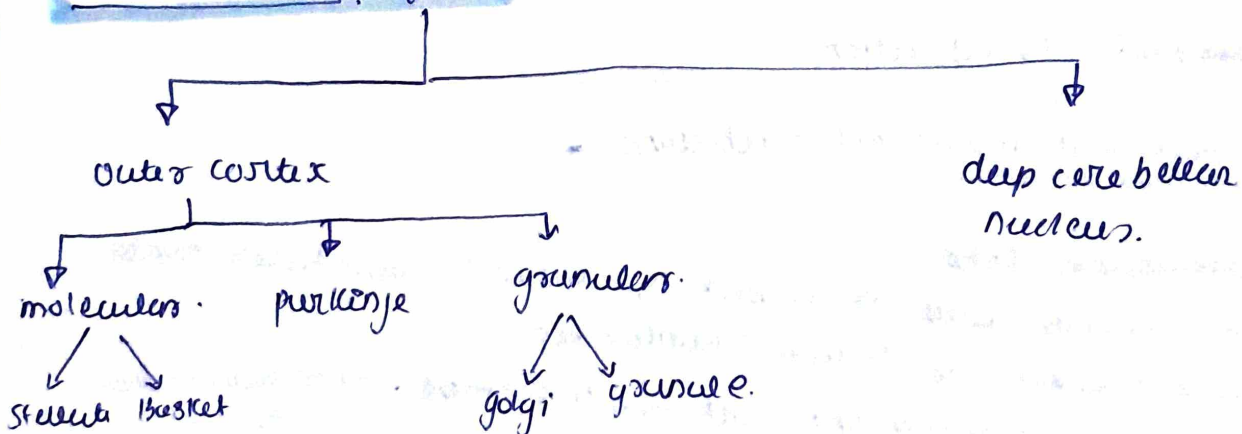 outer cortex
deep cerebellar
nucleus.
molecular.
purkinje
granular.
stellate Basket
golgi granule.